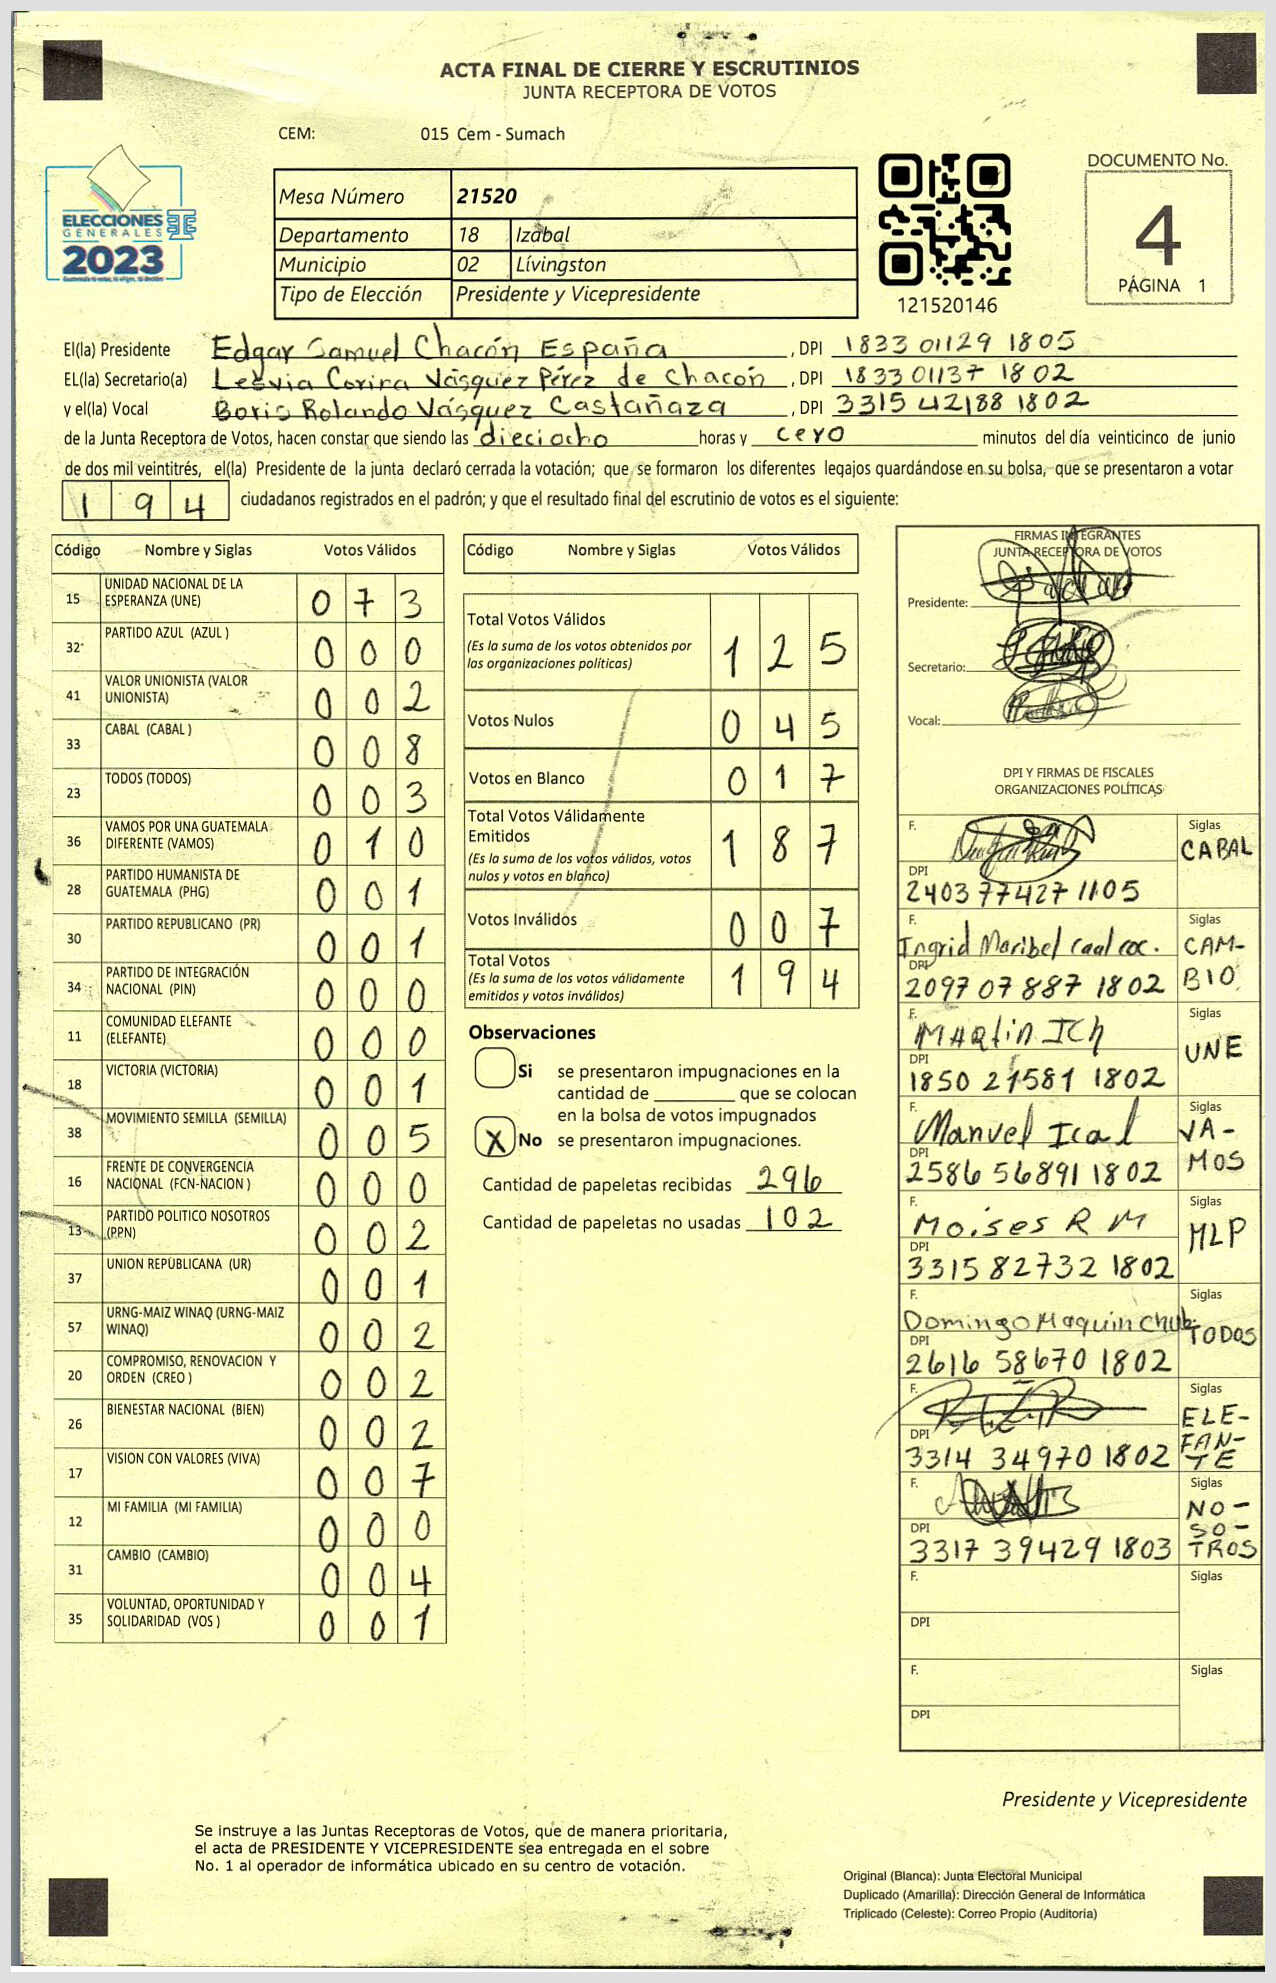 ACTA FINAL DE CIERRE Y ESCRUTINIOS
JUNTA RECEPTORA DE VOTOS
CEM: 015 Cem - Sumach
ELECCIONES
GENERALES
2023
Mesa Número 21520
Departamento 18 Izabal
Municipio 02 Lívingston
Tipo de Elección Presidente y Vicepresidente
121520146
DOCUMENTO No.
4
PÁGINA 1
El(la) Presidente Edgar Samuel Chacón España, DPI 1833 01129 1805
EL(la) Secretario(a) Lesvia Corina Vásquez Pérez de Chacón, DPI 1833 01137 1802
y el(la) Vocal Boris Rolando Vásquez Castañaza, DPI 3315 42188 1802
de la Junta Receptora de Votos, hacen constar que siendo las dieciocho horas y cero minutos del día veinticinco de junio
de dos mil veintitrés, el(la) Presidente de la junta declaró cerrada la votación; que se formaron los diferentes legajos guardándose en su bolsa, que se presentaron a votar
194 ciudadanos registrados en el padrón; y que el resultado final del escrutinio de votos es el siguiente:
Código Nombre y Siglas Votos Válidos
15 UNIDAD NACIONAL DE LA ESPERANZA (UNE) 073
32 PARTIDO AZUL (AZUL ) 000
41 VALOR UNIONISTA (VALOR UNIONISTA) 002
33 CABAL (CABAL ) 008
23 TODOS (TODOS) 003
36 VAMOS POR UNA GUATEMALA DIFERENTE (VAMOS) 010
28 PARTIDO HUMANISTA DE GUATEMALA (PHG) 001
30 PARTIDO REPUBLICANO (PR) 001
34 PARTIDO DE INTEGRACIÓN NACIONAL (PIN) 000
11 COMUNIDAD ELEFANTE (ELEFANTE) 000
18 VICTORIA (VICTORIA) 001
38 MOVIMIENTO SEMILLA (SEMILLA) 005
16 FRENTE DE CONVERGENCIA NACIONAL (FCN-NACION ) 000
13 PARTIDO POLITICO NOSOTROS (PPN) 002
37 UNION REPUBLICANA (UR) 001
57 URNG-MAIZ WINAQ (URNG-MAIZ WINAQ) 002
20 COMPROMISO, RENOVACION Y ORDEN (CREO ) 002
26 BIENESTAR NACIONAL (BIEN) 002
17 VISION CON VALORES (VIVA) 007
12 MI FAMILIA (MI FAMILIA) 000
31 CAMBIO (CAMBIO) 004
35 VOLUNTAD, OPORTUNIDAD Y SOLIDARIDAD (VOS ) 001
Código Nombre y Siglas Votos Válidos
Total Votos Válidos 125
(Es la suma de los votos obtenidos por
las organizaciones políticas)
Votos Nulos 045
Votos en Blanco 017
Total Votos Válidamente
Emitidos 187
(Es la suma de los votos válidos, votos
nulos y votos en blanco)
Votos Inválidos 007
Total Votos 194
(Es la suma de los votos válidamente
emitidos y votos inválidos)
Observaciones
Si se presentaron impugnaciones en la
cantidad de ________ que se colocan
en la bolsa de votos impugnados
X No se presentaron impugnaciones.
Cantidad de papeletas recibidas 296
Cantidad de papeletas no usadas 102
FIRMAS INTEGRANTES
JUNTA RECEPTORA DE VOTOS
Presidente:
Secretario:
Vocal:
DPI Y FIRMAS DE FISCALES
ORGANIZACIONES POLÍTICAS
F. Siglas
CABAL
DPI
2403 77427 1105
F. Siglas
Ingrid Maribel Caal coc. CAM-
DPI BIO
2097 07887 1802
F. Siglas
Martin Ich UNE
DPI
1850 21581 1802
F. Siglas
Manuel Ical VA-
DPI MOS
2586 56891 1802
F. Siglas
Moises R M MLP
DPI
3315 82732 1802
F. Siglas
Domingo Maquin Chub TODOS
DPI
2616 58670 1802
F. Siglas
ELE-
FAN-
TE
DPI
3314 34970 1802
F. Siglas
NO-
SO-
TROS
DPI
3317 39429 1803
F. Siglas
DPI
F. Siglas
DPI
Presidente y Vicepresidente
Se instruye a las Juntas Receptoras de Votos, que de manera prioritaria,
el acta de PRESIDENTE Y VICEPRESIDENTE sea entregada en el sobre
No. 1 al operador de informática ubicado en su centro de votación.
Original (Blanca): Junta Electoral Municipal
Duplicado (Amarilla): Dirección General de Informática
Triplicado (Celeste): Correo Propio (Auditoria)